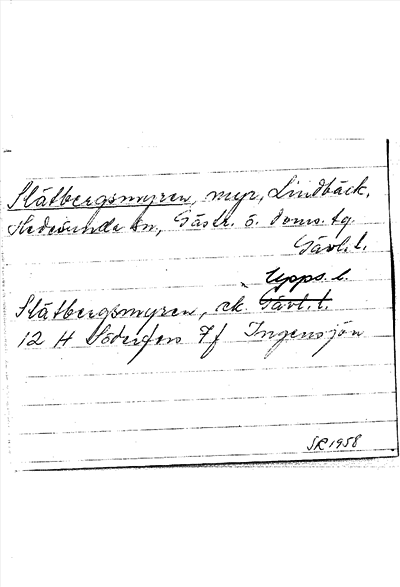 Slätbergsmyren, myr, Lindbäck,
Hedesunda sn, Gästr. ö. doms. tg.
Gävl. l.
Upps. l.
Slätbergsmyren, ek. Gävl. l.
12 H Söderfors 7f Ingensjön
SR 1958